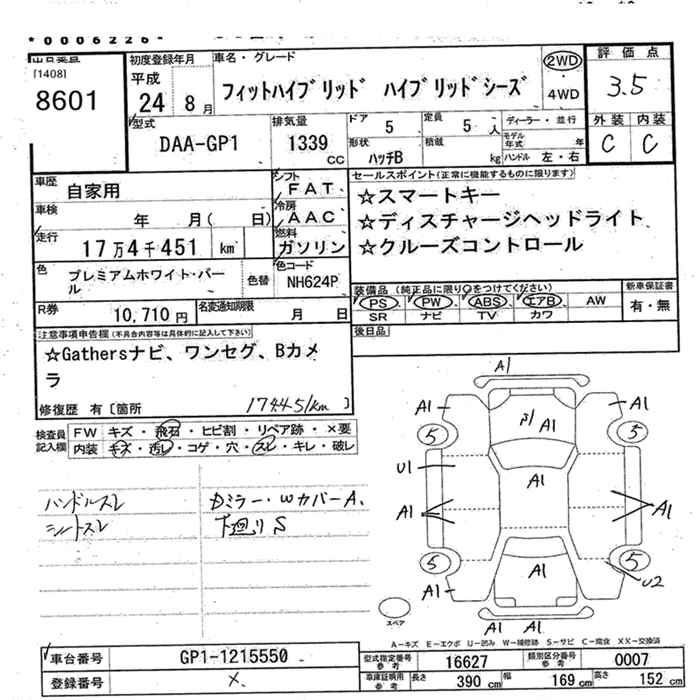 *0006226*
[1408]
8601
初度登録年月
平成
24年8月
車名・グレード
フィットハイブリッド ハイブリッドシーズ
2WD
・
4WD
評価点
3.5
外装 内装
C C
型式
DAA-GP1
排気量
1339
CC
ドア
5
定員
5 人
ディーラー・並行
形状
ハッチB
積載
kg
モデル年式 年
ハンドル 左・右
車歴
自家用
シフト
FAT
車検
年 月( 日)
冷房
AAC
走行
17万4千451 km
燃料
ガソリン
色
プレミアムホワイト・パール
色替
色コード
NH624P
R券
10,710円
名変通知期限
月 日
セールスポイント(正常に機能するものに限ります)
☆スマートキー
☆ディスチャージヘッドライト
☆クルーズコントロール
装備品(純正品に限り○をつけてください)
PS PW ABS エアB AW
SR ナビ TV カワ
新車保証書
有・無
後日品
注意事項申告欄(不具合内容等は具体的に記入して下さい)
☆Gathersナビ、ワンセグ、Bカメ
ラ
修復歴 有〔箇所 174451km〕
検査員
記入欄
FW キズ・飛石・ヒビ割・リペア跡・×要
内装 キズ・汚レ・コゲ・穴・スレ・キレ・破レ
ハンドルスレ
シートスレ
Dミラー・WカバーA、
下廻りS
A1
A1 A1
A1
5 5
U1 A1
A1 A1
5 5
A1 A1 U2
A1 A1
スペア
A-キズ E-エクボ U-凹み W-補修跡 S-サビ C-腐食 XX-交換済
車台番号
GP1-1215550
登録番号
×
型式指定番号
参考
16627
類別区分番号
参考
0007
車庫証明用
参考
長さ 390 cm 幅 169 cm 高さ 152 cm